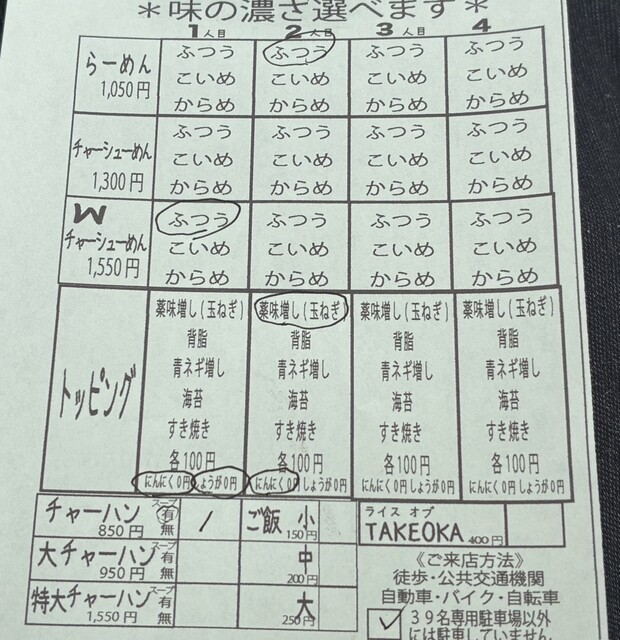 ＊味の濃さ選べます＊
1人目 2人目 3人目 4
らーめん 1,050円 ふつう ふつう ふつう ふつう
こいめ こいめ こいめ こいめ
からめ からめ からめ からめ
チャーシューめん 1,300円 ふつう ふつう ふつう ふつう
こいめ こいめ こいめ こいめ
からめ からめ からめ からめ
W チャーシューめん 1,550円 ふつう ふつう ふつう ふつう
こいめ こいめ こいめ こいめ
からめ からめ からめ からめ
トッピング 薬味増し(玉ねぎ) 薬味増し(玉ねぎ) 薬味増し(玉ねぎ) 薬味増し(玉ねぎ)
背脂 背脂 背脂 背脂
青ネギ増し 青ネギ増し 青ネギ増し 青ネギ増し
海苔 海苔 海苔 海苔
すき焼き すき焼き すき焼き すき焼き
各100円 各100円 各100円 各100円
にんにく0円 しょうが0円 にんにく0円 しょうが0円 にんにく0円 しょうが0円 にんにく0円 しょうが0円
チャーハン 850円 スープ 有 無 / ご飯 小 150円 ライス オブ TAKEOKA 400円
大チャーハン 950円 スープ 有 無 中 200円
特大チャーハン 1,550円 スープ 有 無 大 250円
《ご来店方法》
徒歩・公共交通機関
自動車・バイク・自転車
✓ 39名専用駐車場以外
には駐車していません